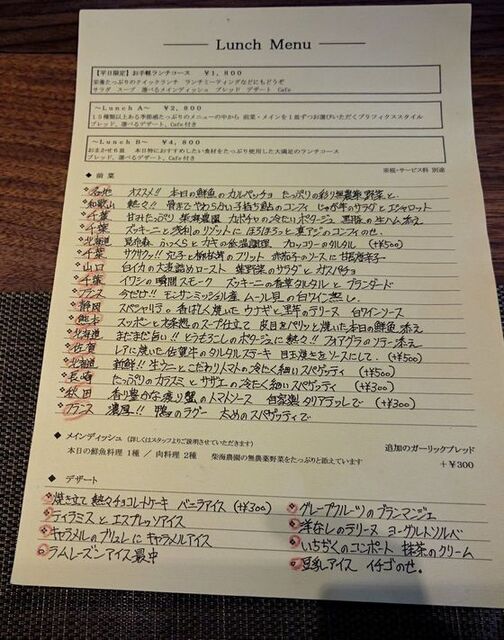 Lunch Menu
【平日限定】お手軽ランチコース ￥1,800
栄養たっぷりのクイックランチ ランチミーティングなどにもどうぞ
サラダ スープ 選べるメインディッシュ ブレッド デザート Cafe
～Lunch A～ ￥2,800
15種類以上ある季節感たっぷりのメニューの中から 前菜・メインを1皿ずつお選びいただくプリフィクススタイル
ブレッド、選べるデザート、Cafe付き
～Lunch B～ ￥4,800
おまかせ6皿 本日特におすすめしたい食材をたっぷり使用した大満足のランチコース
ブレッド、選べるデザート、Cafe付き
※税・サービス料 別途
◆ 前菜
各地 オススメ!! 本日の鮮魚のカルパッチョ たっぷりの彩り無農薬野菜と
和歌山 熱々!! 骨までやわらかい子持ち鮎のコンフィ じゃが芋のサラダとエシャロット
千葉 甘みたっぷり 柴海農園 カボチャの冷たいポタージュ 黒豚の生ハム添え
千葉 ズッキーニと浅利のリゾートに ほろほろっと真アジのコンフィのせ。
北海道 昆布森 ふっくらとカキの低温調理 ブロッコリーのタルタル (+¥500)
千葉 サクサクッ!! 穴子と のフリット 赤茄子のソースに甘長唐辛子
山口 白イカの大麦詰めロースト 葉野菜のサラダと ガスパチョ
千葉 イワシの瞬間スモーク ズッキーニの香草タルタルと ブランダード
フランス 今だけ!! モンサンミッシェル産 ムール貝の白ワイン蒸し。
静岡 スペシャリテ 香ばしく焼いた ウナギと里芋のテリーヌ 白ワインソース
熊本 スッポンと大麦 のスープ仕立て 皮目をパリッと焼いた本日の鮮魚 添え
北海道 まだまだ旨い!! とうもろこしのポタージュに 熱々!! フォアグラのソテー添え
佐賀 レアに焼いた佐賀牛のタルタルステーキ 目玉焼きをソースにして。 (+¥500)
北海道 新鮮!! 生ウニとこだわりトマトの冷たく細いスパゲッティ (+¥500)
長崎 たっぷりのカラスミと サザエの冷たく細いスパゲッティ (+¥300)
秋田 香り豊かな渡り蟹のトマトソース 自家製タリアテッレで (+¥300)
フランス 濃厚!! 鴨のラグー 太めのスパゲッティで
◆ メインディッシュ (詳しくはスタッフよりご説明させていただきます) 追加のガーリックブレッド
本日の鮮魚料理 1種 / 肉料理 2種 柴海農園の無農薬野菜をたっぷりと添えています +￥300
◆ デザート
焼き立て 熱々チョコレートケーキ バニラアイス (+¥300)
ティラミスと エスプレッソアイス
キャラメルのブリュレに キャラメルアイス
ラムレーズンアイス最中
グレープフルーツのブランマンジェ
洋なしのテリーヌ ヨーグルトソルベ
いちぢくのコンポート 抹茶のクリーム
豆乳アイス イチゴのせ。